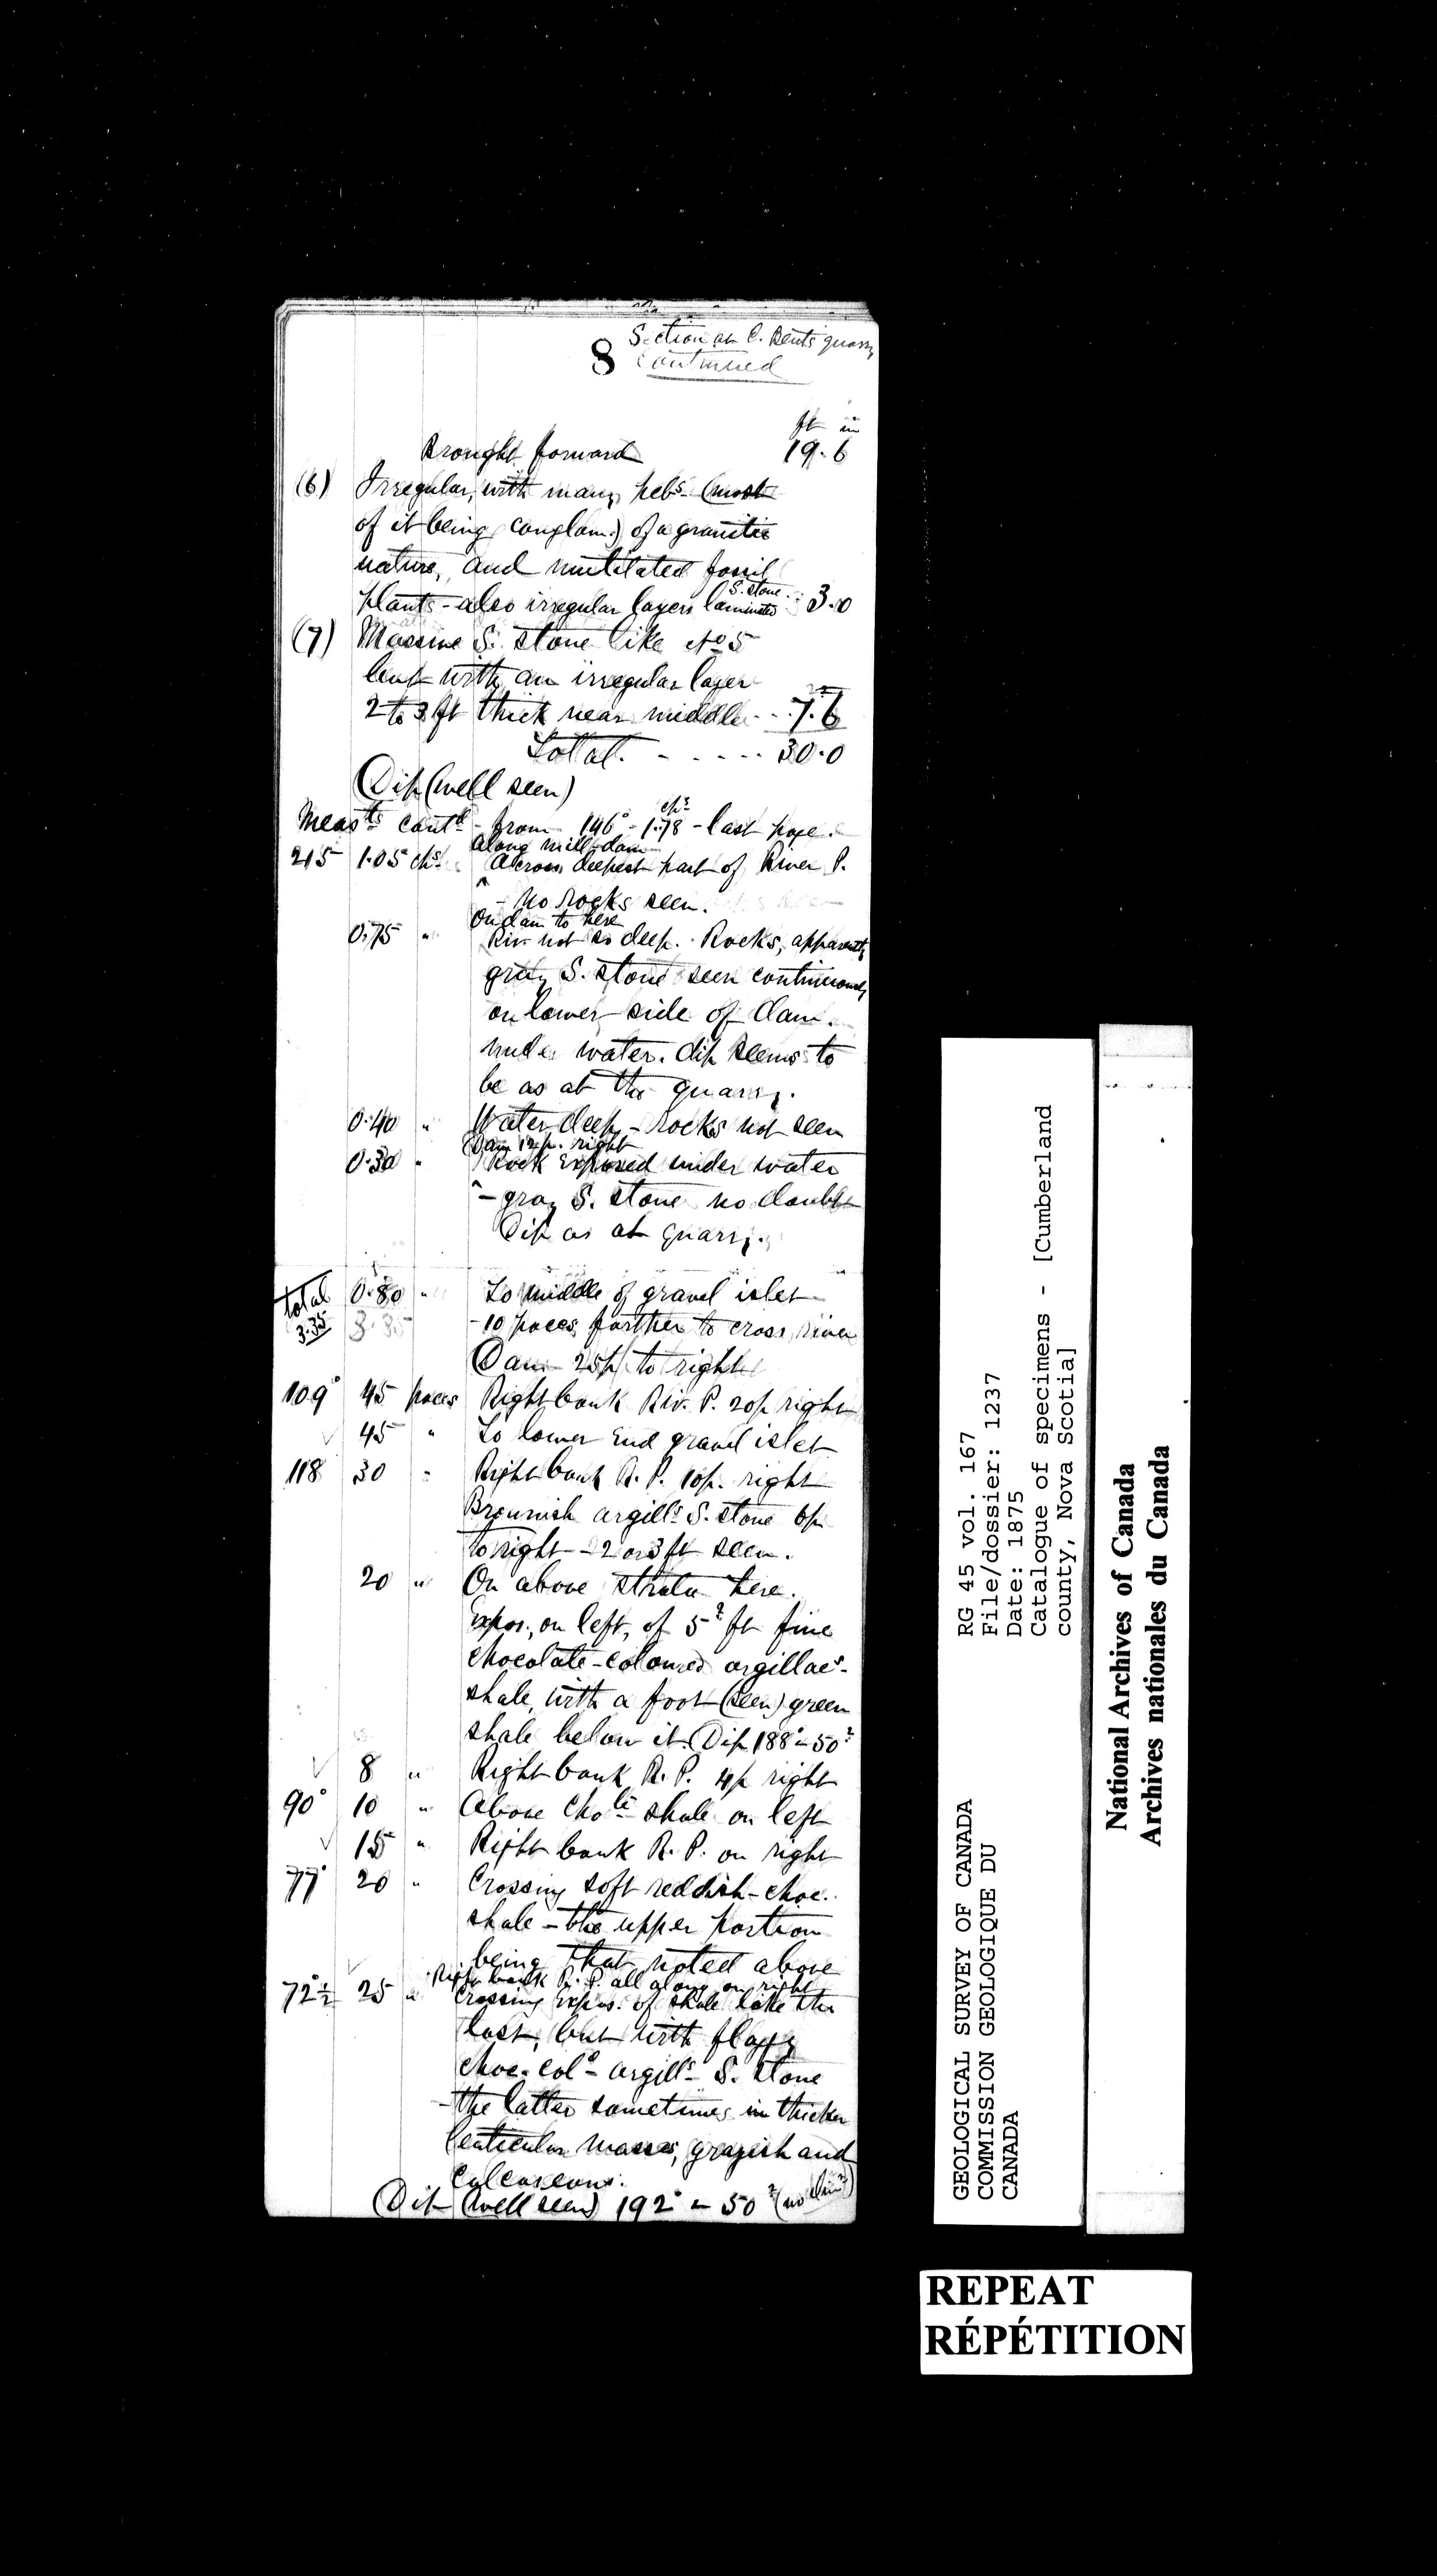 8 Section at C. Bents quarry
continued
ft in
Brought forward 19.6
(6) Irregular, with many pebs. (most
of it being conglom.) of a granitic
nature, and mutilated fossil
plants - also irregular layers laminated S. stone .. 3.0
(7) Massive S. stone like No 5
but with an irregular layer
2 to 3 ft thick near middle ... 7.6
Total. - . - - .. 30.0
Dip (well seen)
Meas.ts cont.d - from 146° - 1.78 chs - last page.
Along mill-dam
215 1.05 chs. Across deepest part of River P.
- No rocks seen.
On dam to here
0.75 " Riv. not so deep. Rocks, apparently
gray S. stone seen continuously
on lower side of dam.
under water. dip seems to
be as at the quarry.
0.40 " Water deep - rocks not seen
Dam 12p. right
0.30 " Rock exposed under water
- gray S. stone no doubt
Dip as at quarry.
total 0.80 " To middle of gravel islet
3.35 3.35 - 10 paces further to cross river
Dam 25p to right
109° 45 paces Right bank Riv. P. 20p right
45 " To lower end gravel islet
118 30 " Right bank R. P. 10p. right
Brownish argills S. stone 6p
to right - 2 or 3 ft seen.
20 " On above strata here.
Expos., on left, of 5? ft fine
chocolate-coloured argillacs.
shale, with a foot (seen) green
shale below it. Dip 188° - 50?
8 " Right bank R. P. 4p right
90° 10 " Above chole shale on left
15 " Right bank R. P. on right
77° 20 " Crossing soft reddish-choc.
shale - the upper portion
being that noted above
Right bank R. P. all along on right
72°½ 25 " Crossing expos. of shale like the
last, but with flaggy
choc-cold argills S. stone
- the latter sometimes in thicker
lenticular masses, grayish and
calcareous.
Dip (well seen) 192° - 50?
GEOLOGICAL SURVEY OF CANADA
COMMISSION GEOLOGIQUE DU
CANADA
RG 45 vol. 167
File/dossier: 1237
Date: 1875
Catalogue of specimens - [Cumberland
county, Nova Scotia]
National Archives of Canada
Archives nationales du Canada
REPEAT
RÉPÉTITION